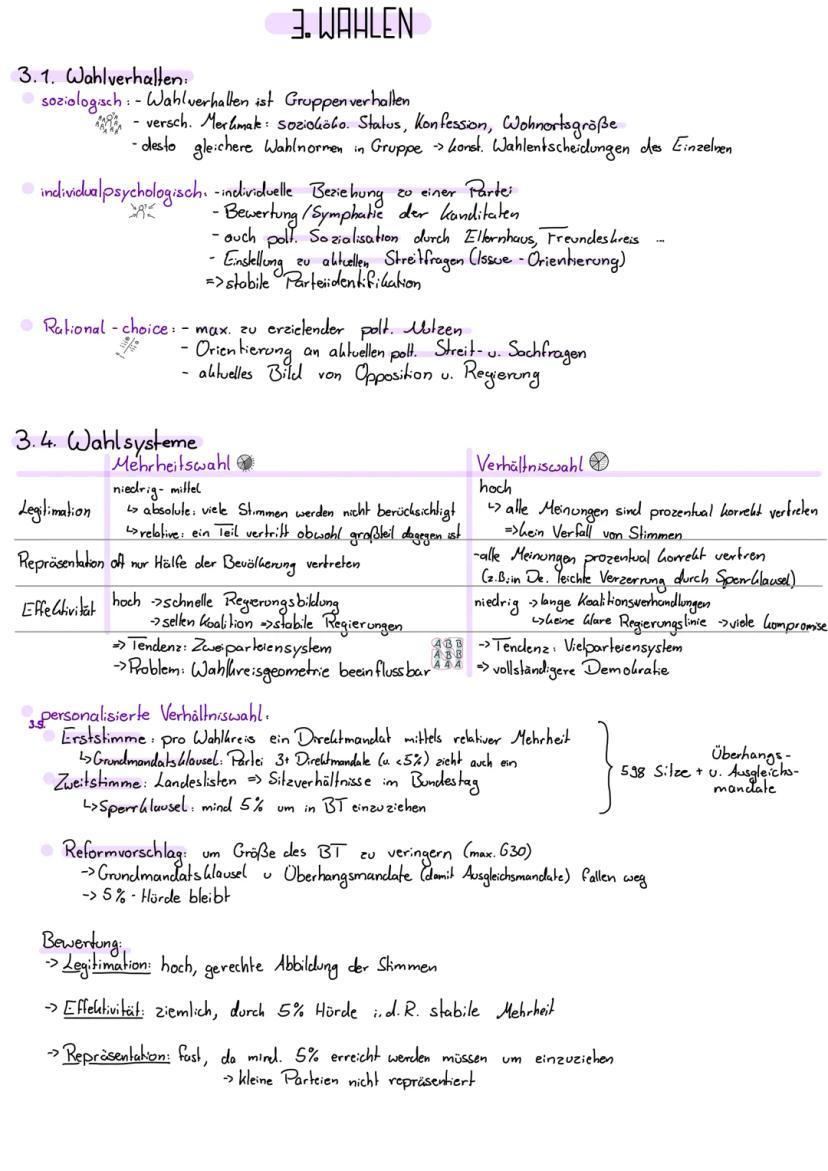 3. WAHLEN
3.1. Wahlverhalten:
soziologisch: - Wahlverhalten ist Gruppenverhalten
- versch. Merkmale: sozioöko. Status, Konfession, Wohnortsgröße
- desto gleichere Wahlnormen in Gruppe -> konst. Wahlentscheidungen des Einzelnen
individualpsychologisch: - individuelle Beziehung zu einer Partei
- Bewertung/Symphatie der Kanditaten
- auch polt. Sozialisation durch Elternhaus, Freundeskreis ...
- Einstellung zu aktuellen Streitfragen (Issue-Orientierung)
=> stabile Parteiidentifikation
Rational-choice: - max. zu erzielender polt. Nutzen
- Orientierung an aktuellen polt. Streit- u. Sachfragen
- aktuelles Bild von Opposition u. Regierung
3.4. Wahlsysteme
Mehrheitswahl Verhältniswahl
Legitimation niedrig-mittel
↳ absolute: viele Stimmen werden nicht berücksichtigt
↳ relative: ein Teil vertritt obwohl großteil dagegen ist
hoch
↳ alle Meinungen sind prozentual korrekt vertreten
=> kein Verfall von Stimmen
Repräsentation oft nur Hälfe der Bevölkerung vertreten
- alle Meinungen prozentual korrekt vertren
(z.B. in De. leichte Verzerrung durch Sperrklausel)
Effektivität hoch -> schnelle Regierungsbildung
-> selten Koalition => stabile Regierungen
niedrig -> lange Koalitionsverhandlungen
↳ keine klare Regierungslinie -> viele kompromise
=> Tendenz: Zweiparteiensystem
-> Problem: Wahlkreisgeometrie beeinflussbar
A B B
A B B
A A A
-> Tendenz: Vielparteiensystem
=> vollständigere Demokratie
3.5. personalisierte Verhältniswahl:
Erststimme: pro Wahlkreis ein Direktmandat mittels relativer Mehrheit
↳ Grundmandatsklausel: Partei 3+ Direktmandate (u. <5%) zieht auch ein
Zweitstimme: Landeslisten => Sitzverhältnisse im Bundestag
↳ Sperrklausel: mind 5% um in BT einzuziehen
598 Sitze + Überhangs-
u. Ausgleichs-
mandate
Reformvorschlag: um Größe des BT zu veringern (max. 630)
-> Grundmandatsklausel u Überhangsmandate (damit Ausgleichsmandate) fallen weg
-> 5%-Hürde bleibt
Bewertung:
-> Legitimation: hoch, gerechte Abbildung der Stimmen
-> Effektivität: ziemlich, durch 5% Hürde i.d.R. stabile Mehrheit
-> Repräsentation: fast, da mind. 5% erreicht werden müssen um einzuziehen
-> kleine Parteien nicht repräsentiert